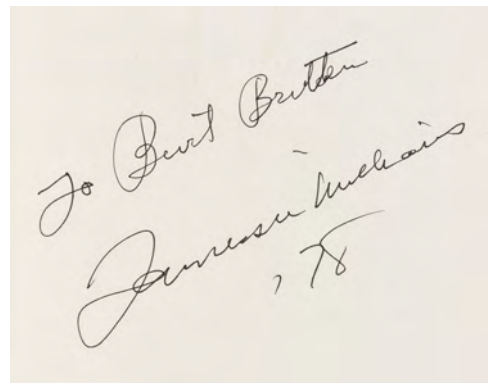 To Burt Britton
Tennessee Williams
'78